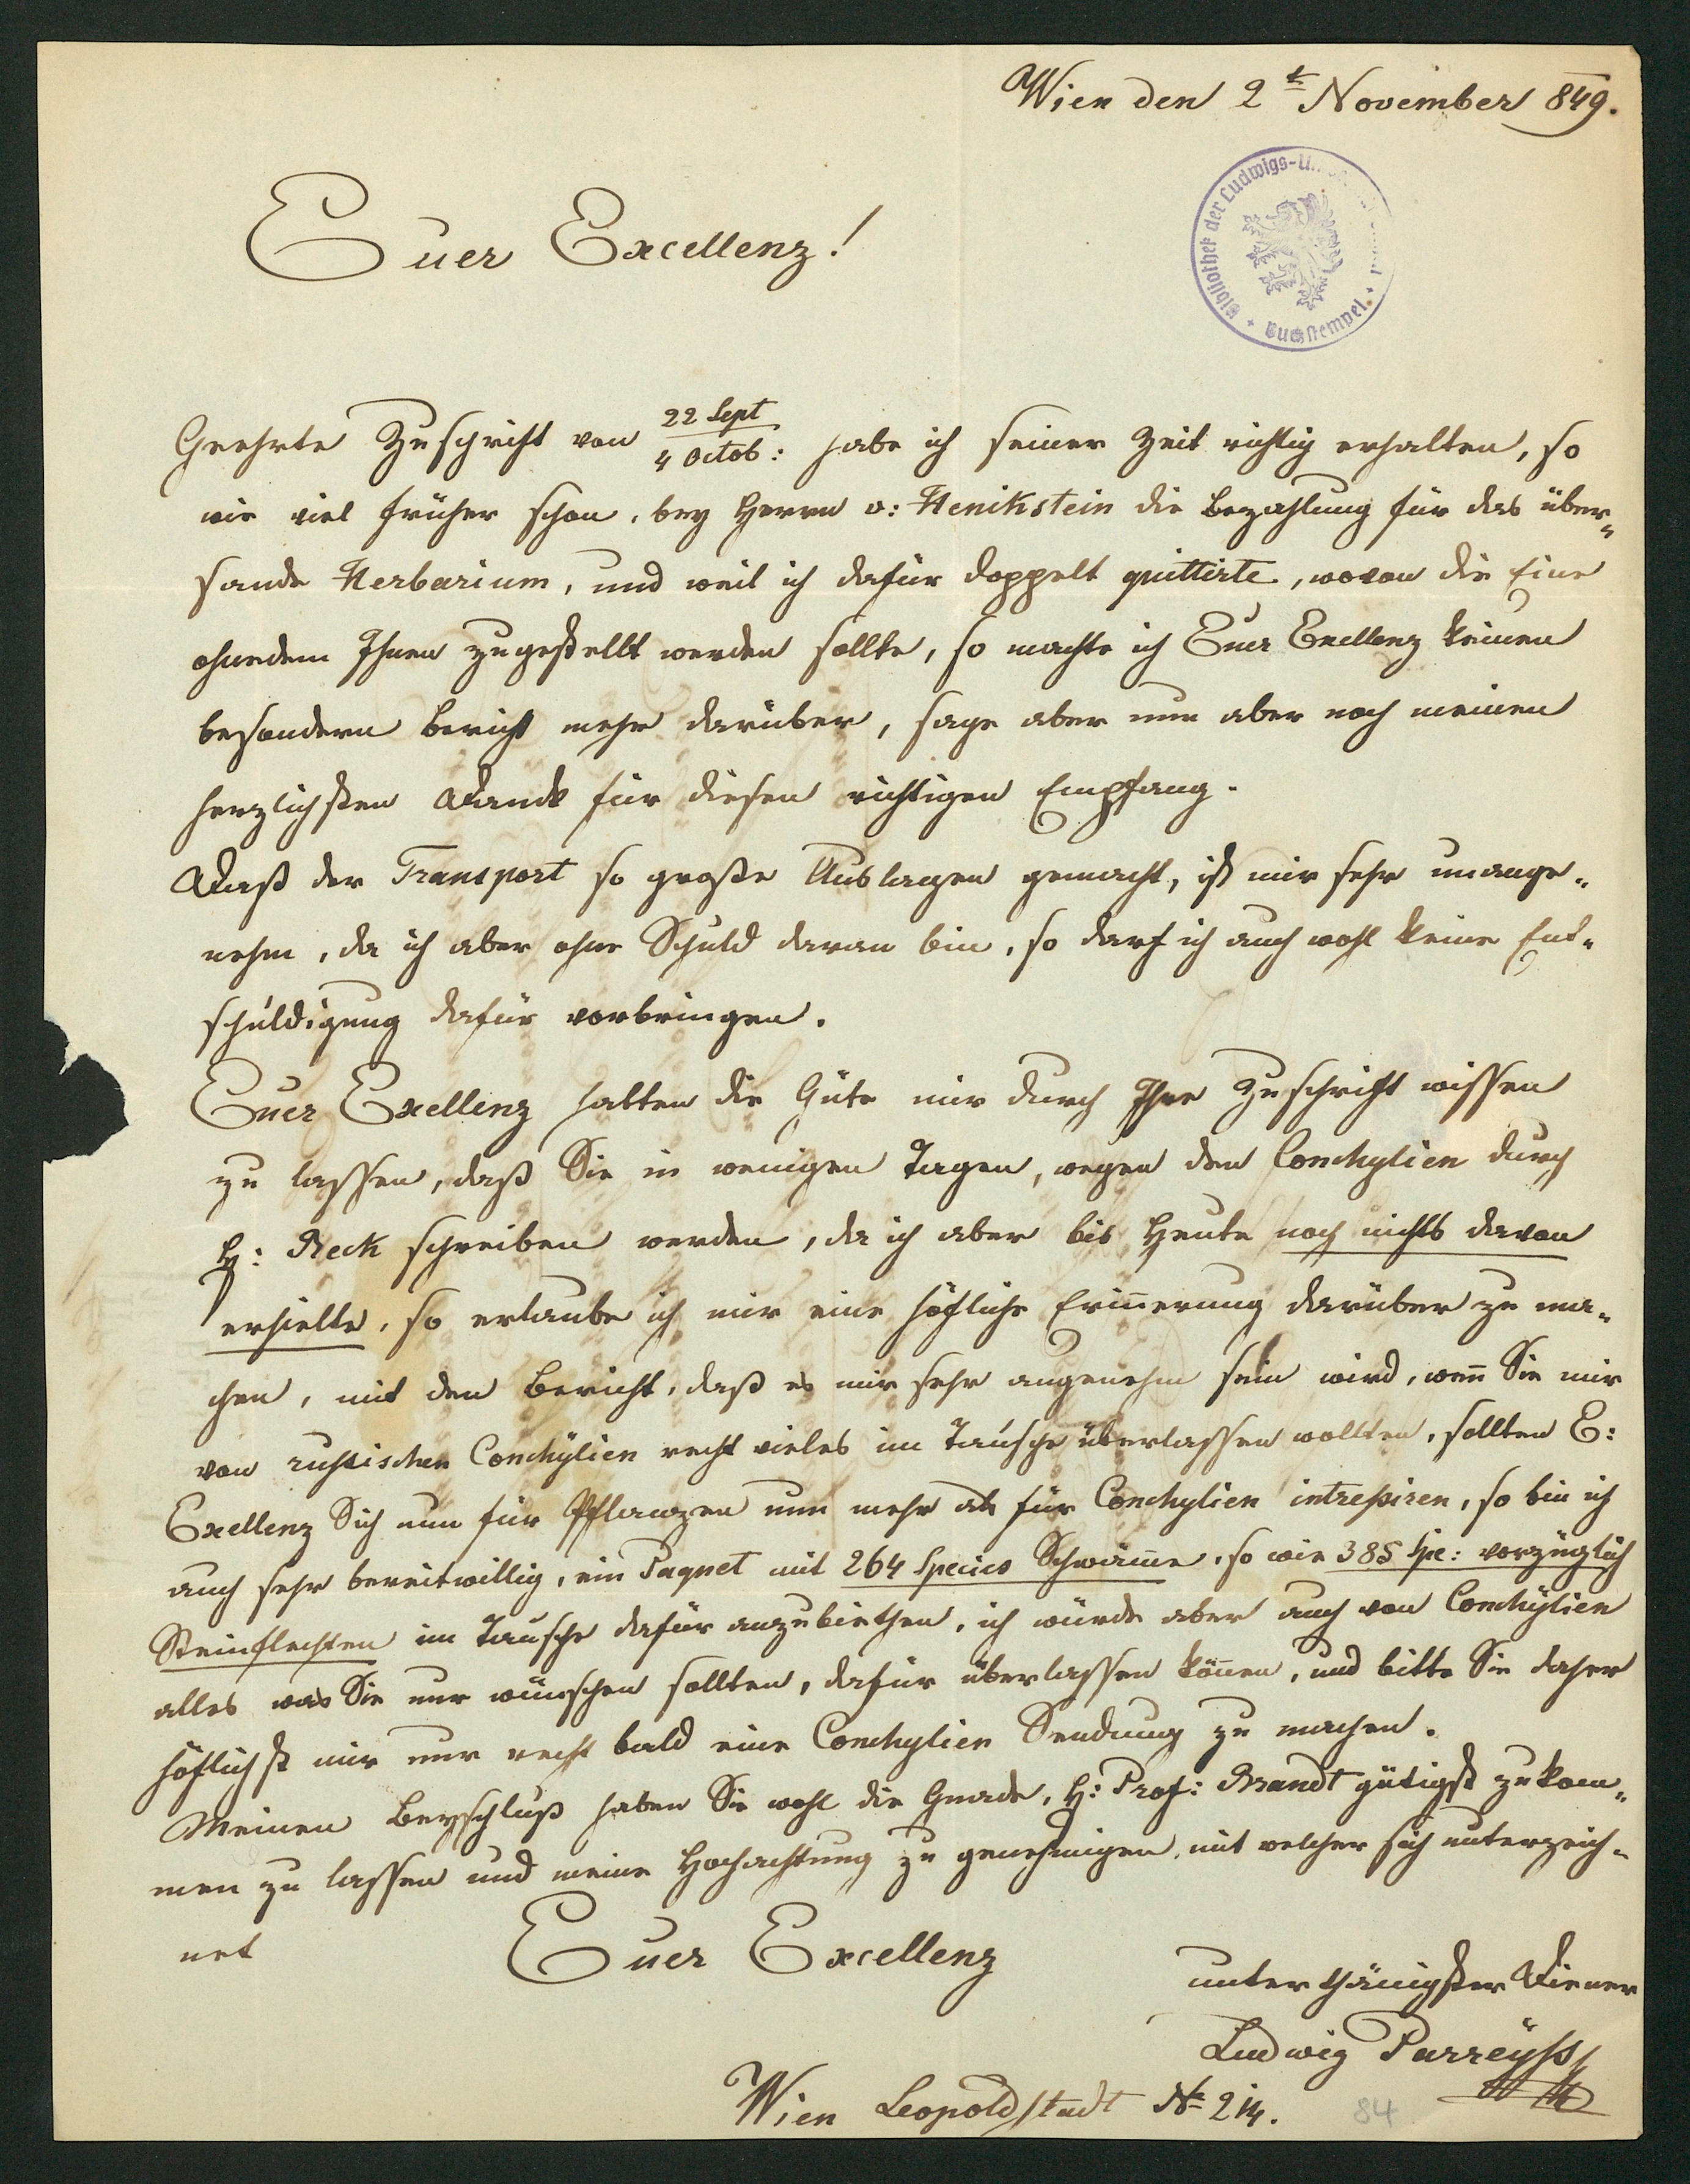 Wien den 2t November 849.
Bibliothek der Ludwigs-U
+ Buchstempel. +
Euer Excellenz!
Geehrte Zuschrift von 22 Sept / 4 Octob: habe ich seiner Zeit richtig erhalten, so
wie viel früher schon, bey Herrn v: Henikstein die Bezahlung für das über„
sande Herbarium, und weil ich dafür doppelt quittirte, wovon die Eine
ohnedem Ihnen zugestellt werden sollte, so machte ich Euer Exellenz keinen
besondern Bericht mehr darüber, sage aber nun aber noch meinen
herzlichsten Dank für diesen richtigen Empfang.
Daß der Transport so große Auslagen gemacht, ist mir sehr unange„
nehm, da ich aber ohne Schuld daran bin, so darf ich auch wohl keine Ent„
schuldigung dafür vorbringen.
Euer Exellenz hatten die Güte mir durch Ihre Zuschrift wissen
zu lassen, daß Sie in wenigen Tagen, wegen den Conchylien durch
H: Reck schreiben werden, da ich aber bis Heute noch nichts davon
erhielte, so erlaube ich mir eine höfliche Erinnerung darüber zu ma„
chen, mit den Bericht, daß es mir sehr angenehm sein wird, wenn Sie mir
von russischen Conchÿlien recht vieles im Tausche überlassen wollten, sollten E:
Exellenz Sich nun für Pflanzen nun mehr als für Conchylien intressiren, so bin ich
auch sehr bereitwillig, ein Paquet mit 264 Species Schwäme, so wie 385 Spe: vorzüglich
Steinflechten im Tausche dafür anzubiethen, ich würde aber auch von Conchÿlien
alles was Sie nur wünschen sollten, dafür überlassen können, und bitte Sie daher
höflichst mir nur recht bald eine Conchylien Sendung zu machen.
Meinen Beyschluß haben Sie wohl die Gnade, H: Prof: Brandt gütigst zukom„
men zu lassen und meine Hochachtung zu genehmigen, mit welcher sich unterzeich„
net
Euer Excellenz
unterthänigster Diener
Ludwig Parreÿss
Wien Leopoldstadt № 214.
84